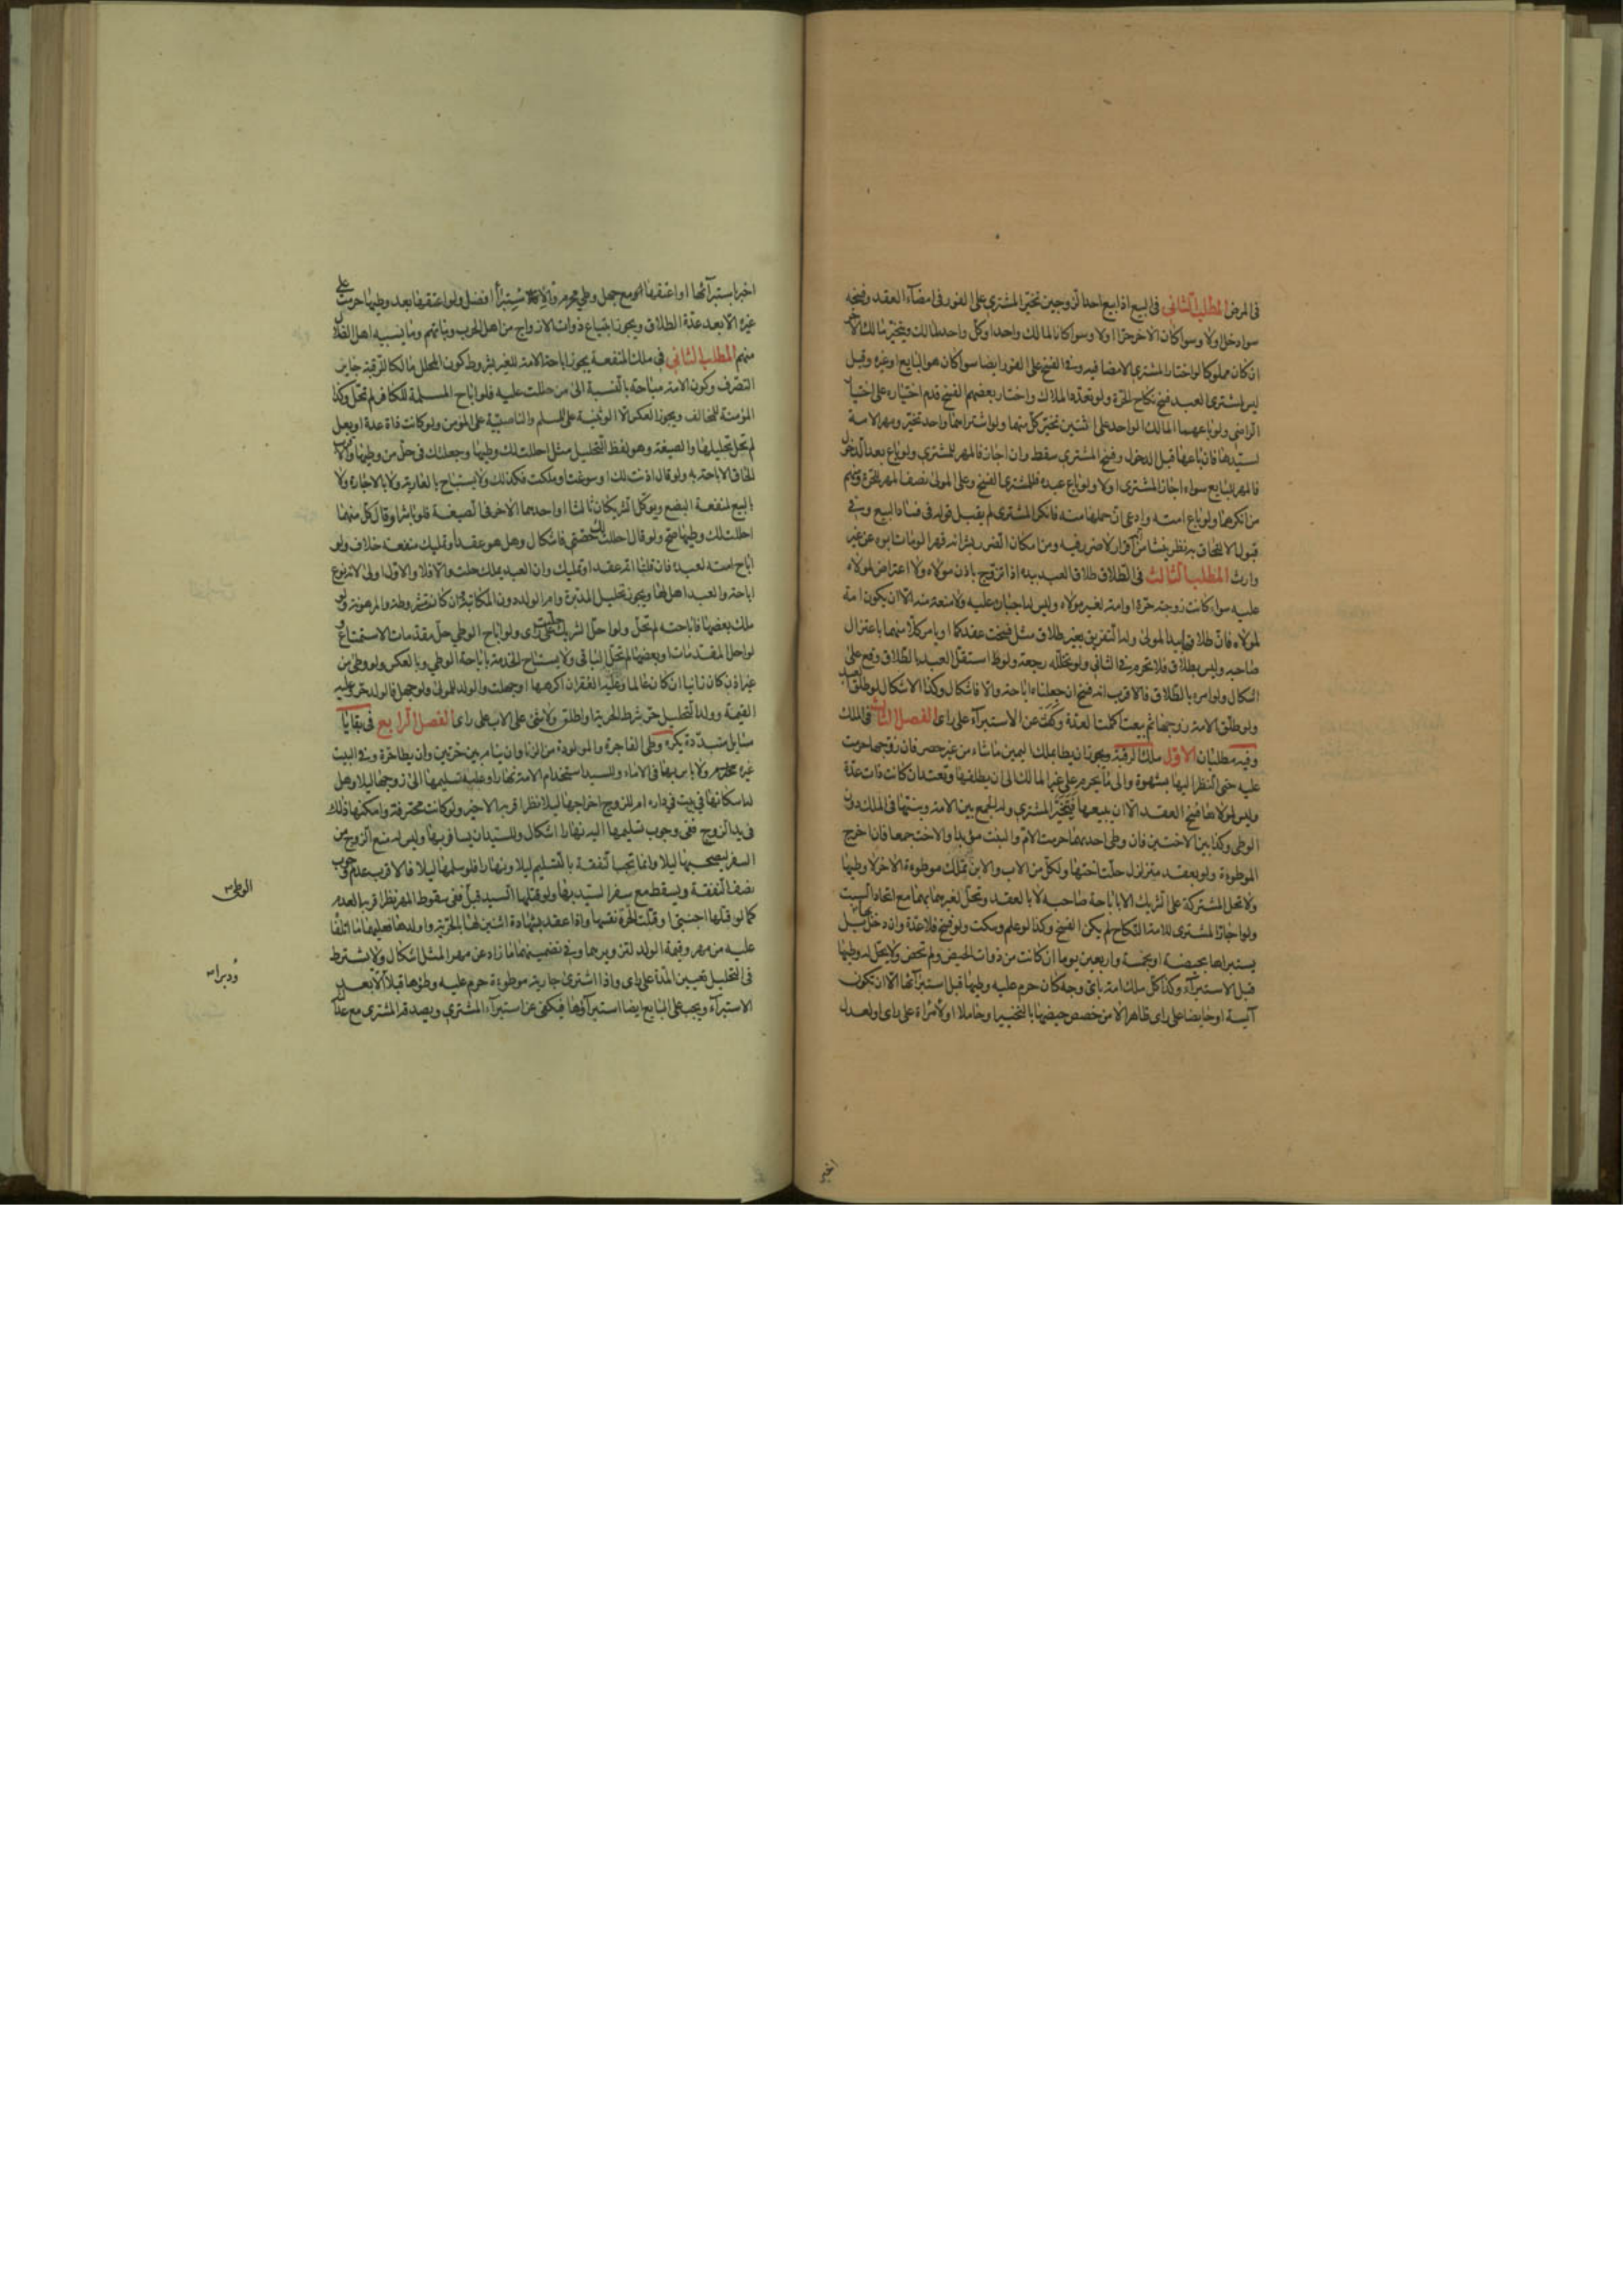 في المرض المطلب الثاني في البيع اذا بيع احد الزوجين تخير المشتري على الفور في امضاء العقد وفسخه
سواء دخل اولا وسوا كان الاخر حرا اولا وسوا كانا لمالك واحد او كل واحد لمالك ويتخير مالك الاخر
ان كان مملوكا لو اختار المشتري الامضا فيه وفي الفسخ على الفور ايضا سوا كان هو البايع او غيره وقيل
ليس لمشتري العبد فسخ نكاح الحرة ولو تعدد الملاك واختار بعضهم الفسخ قدم اختياره على اختيار
الراضي ولو باعهما المالك الواحد على اثنين تخير كل منهما ولو اشتراهما واحد تخير ومهر الامة
لسيدها فان باعها قبل الدخول وفسخ المشتري سقط وان اجاز فالمهر للمشتري ولو باع بعد الدخول
فالمهر للبايع سواء اجاز المشتري اولا ولو باع عبده فللمشتري الفسخ وعلى المولى نصف المهر للحرة ومنهم
من انكرهما ولو باع امته وادعى ان حملها منه فانكر المشتري لم يقبل قوله في فساد البيع وفي
قبول الالتحاق به نظر ينشا من انه اقرار لا ضرر فيه ومن امكان الضرر بشرائه قهرا لو مات ابوه عن غير
وارث المطلب الثالث في الطلاق طلاق العبد بيده اذا تزوج باذن مولاه ولا اعتراض لمولاه
عليه سوا كانت زوجته حرة او امة لغير مولاه وليس له اجباره عليه ولا منعه منه الا ان يكون امة
لمولاه فان طلاقه بيد المولى وله التفريق بغير طلاق مثل فسخت عقدكما او يامر كلا منهما باعتزال
صاحبه وليس بطلاق فلا تحرم في الثاني ولو تخلله رجعة ولو استقل العبد بالطلاق وقع على
اشكال ولو امره بالطلاق فالاقرب انه فسخ ان جعلناه اباحة والا فاشكال وكذا الاشكال لو طلق العبد
ولو طلق الامة زوجها ثم بيعت اكملت العدة وكفت عن الاستبراء على راى الفصل الثالث في الملك
وفيه مطلبان الاول ملك الرقبة ويجوز ان يطا بملك اليمين ما شاء من غير حصر فان زوجها حرمت
عليه حتى النظر اليها بشهوة والى ما يحرم على غير المالك الى ان يطلقها وتعتد ان كانت ذات عدة
وليس لمولاها فسخ العقد الا ان يبيعها فيتخير المشتري وله الجمع بين الامة وبنتها في الملك دون
الوطى وكذا بين الاختين فان وطى احديهما حرمت الام والبنت مؤبدا والاخت جمعا فان اخرج
الموطوءة ولو بعقد متزلزل حلت اختها ولكل من الاب والابن تملك موطوءة الاخر لا وطيها
ولا تحل المشتركة على الشريك الا باباحة صاحبه لا بالعقد وتحل لغيرهما بهما مع اتحاد السبب
ولو اجاز المشتري للامة النكاح لم يكن الفسخ وكذا لو علم وسكت ولو فسخ فلا عدة وان دخل بل
يستبراها بحيضة او بخمسة واربعين يوما ان كانت من ذوات الحيض ولم تحض ولا يحل له وطيها
قبل الاستبراء وكذا كل ملك امة باى وجه كان حرم عليه وطيها قبل استبرائها الا ان تكون
آيسة او حايضا على راى ظاهر الا من خصص حيضها بالتخيير او حاملا او لامراة على راى او لعدل
اخبر
اخبر باستبرائها او اعتقها مع جهل وطى محرم والاستبراء افضل ولو اعتقها بعد وطيها حرمت على
غيره الا بعد عدة الطلاق ويجوز ابتياع ذوات الازواج من اهل الحرب وبناتهم وما يسبيه اهل الضلال
منهم المطلب الثاني في ملك المنفعة يجوز اباحة الامة للغير بشروط كون المحلل مالكا للرقبة جايز
التصرف وكون الامة مباحة بالنسبة الى من حللت عليه فلو اباح المسلمة للكافر لم تحل وكذا
المؤمنة للمخالف ويجوز العكس الا الوثنية على المسلم والناصبية على المؤمن ولو كانت ذات عدة او بعل
لم يحل تحليلها والصيغة وهو لفظ التحليل مثل احللت لك وطيها وجعلتك في حل من وطيها والاقرب
الحاق الاباحة به ولو قال اذنت لك او سوغت او ملكت فكذلك ولا يستباح بالعارية ولا بالاجارة ولا
ببيع منفعة البضع ويوكل الشريكان ثالثا او احدهما الاخر في الصيغة فلو باشرا وقال كل منهما
احللت لك وطيها صح ولو قال احللت لك حصتي فاشكال وهل هو عقد او تمليك منفعة خلاف ولو
اباح امته لعبده فان قلنا انه عقد او تمليك وان العبد يملك حلت والا فلا والاول اولى لانه نوع
اباحة والعبد اهل لها ويجوز تحليل المدبرة وام الولد دون المكاتبة وان كانت مشروطة والمرهونة ولو
ملك بعضها فاباحته لم تحل ولو احل الشريك حلت على راى ولو اباح الوطى حل مقدمات الاستمتاع ولو
احل المقدمات او بعضها لم تحل الباقي ولا يستباح الخدمة باباحة الوطى وبالعكس ولو وطى من
غير اذن كان زانيا ان كان عالما وعليه العقر ان اكرهها او جهلت والولد للمولى ولو جهل فالولد حر وعليه
القيمة وولد التحليل حر بشرط الحرية او اطلق ولا شى على الاب على راى الفصل الرابع في بقايا
مسايل متبددة يكره وطى الفاجرة والمولودة من الزنا وان ينام بين حرتين وان يطا حرة وفي البيت
غيره ولا باس بهما في الاماء وللسيد استخدام الامة نهارا وعليه تسليمها الى زوجها ليلا وهل
له اسكانها في بيت في داره ام للزوج اخراجها ليلا نظر اقربه الاخير ولو كانت محترفة وامكنها ذلك
في يد الزوج ففى وجوب تسليمها اليه نهارا اشكال وللسيد ان يسافر بها وليس له منع الزوج من
السفر ليصحبها ليلا وانما تجب النفقة بالتسليم ليلا ونهارا فلو سلمها ليلا فالاقرب عدم وجوب
نصف النفقة ويسقط مع سفر السيد بها ولو قتلها السيد قبل ففى سقوط المهر نظر اقربه العدم
كما لو قتلها اجنبى او قتلت الحرة نفسها واذا عقد بشهادة اثنين لها بالحرية واولدها فعليهما ما اتلفا
عليه من مهر وقيمة الولد لتزويرهما وفي تضمينهما ما زاد عن مهر المثل اشكال ولا يشترط
في التحليل تعيين المدة على راى واذا اشترى جارية موطوءة حرم عليه وطؤها قبلا الا بعد
الاستبراء ويجب على البايع ايضا استبراؤها فيكفى عن استبراء المشتري ويصدقه المشتري مع عدا
الوطى
ودبرا